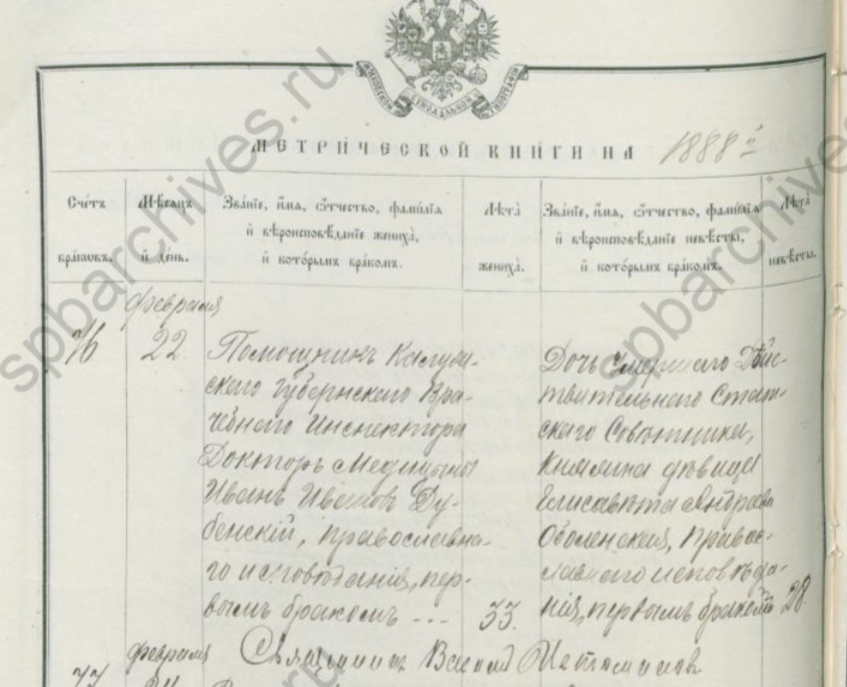 МОСКОВСКОЙ СѴНОДАЛЬНОЙ ТИПОГРАФІИ
МЕТРИ́ЧЕСКОЙ КНИ́ГИ НА 1888 й
Сче́тъ бра́ковъ.
Мѣ́сяцъ и҆ де́нь.
Зва́нїе, и҆́мѧ, ѻ҆́тчество, фами́лїѧ
и҆ вѣроисповѣ́данїе жениха̀,
и҆ кото́рымъ бра́комъ.
Лѣта̀ жениха̀.
Зва́нїе, и҆́мѧ, ѻ҆́тчество, фами́лїѧ
и҆ вѣроисповѣ́данїе невѣ́сты,
и҆ кото́рымъ бра́комъ.
Лѣта̀ невѣ́сты.
февраля
76 22
Помощникъ Калуж-
скаго Губернскаго Вра-
чебнаго Инспектора
Докторъ Медицины
Иванъ Ивановъ Ду-
бенскій, православна-
го исповѣданія, пер-
вымъ бракомъ ---
33.
Дочь умершаго Дѣйс-
твительнаго Статс-
скаго Совѣтника,
Княжна дѣвица
Елисавета Андреева
Оболенская, Правос-
лавнаго исповѣда-
нія, первымъ бракомъ
28
февраля
Священникъ
77
spbarchives.ru
spbarchives.ru